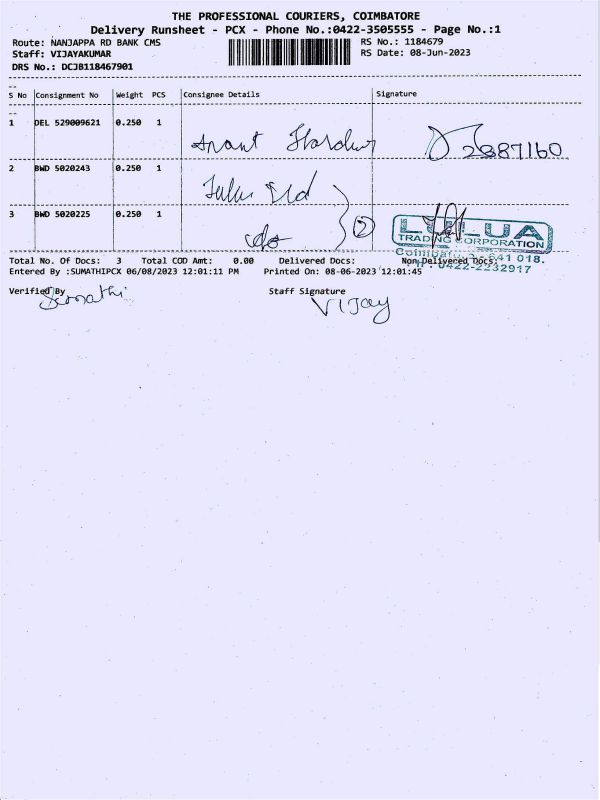 THE PROFESSIONAL COURIERS, COIMBATORE
Delivery Runsheet - PCX - Phone No.:0422-3505555 - Page No.:1
Route: NANJAPPA RD BANK CMS
RS No.: 1184679
Staff: VIJAYAKUMAR
RS Date: 08-Jun-2023
DRS No.: DCJB118467901
S No Consignment No Weight PCS Consignee Details Signature
1 DEL 529009621 0.250 1
2387160
2 BWD 5020243 0.250 1
3 BWD 5020225 0.250 1
2
TRADING CORPORATION
Coimbatore - 641 018.
PH : 0422-2232917
Total No. Of Docs: 3 Total COD Amt: 0.00 Delivered Docs: Non Delivered Docs:
Entered By :SUMATHIPCX 06/08/2023 12:01:11 PM Printed On: 08-06-2023 12:01:45
Verified By Staff Signature
Sumathi Vijay